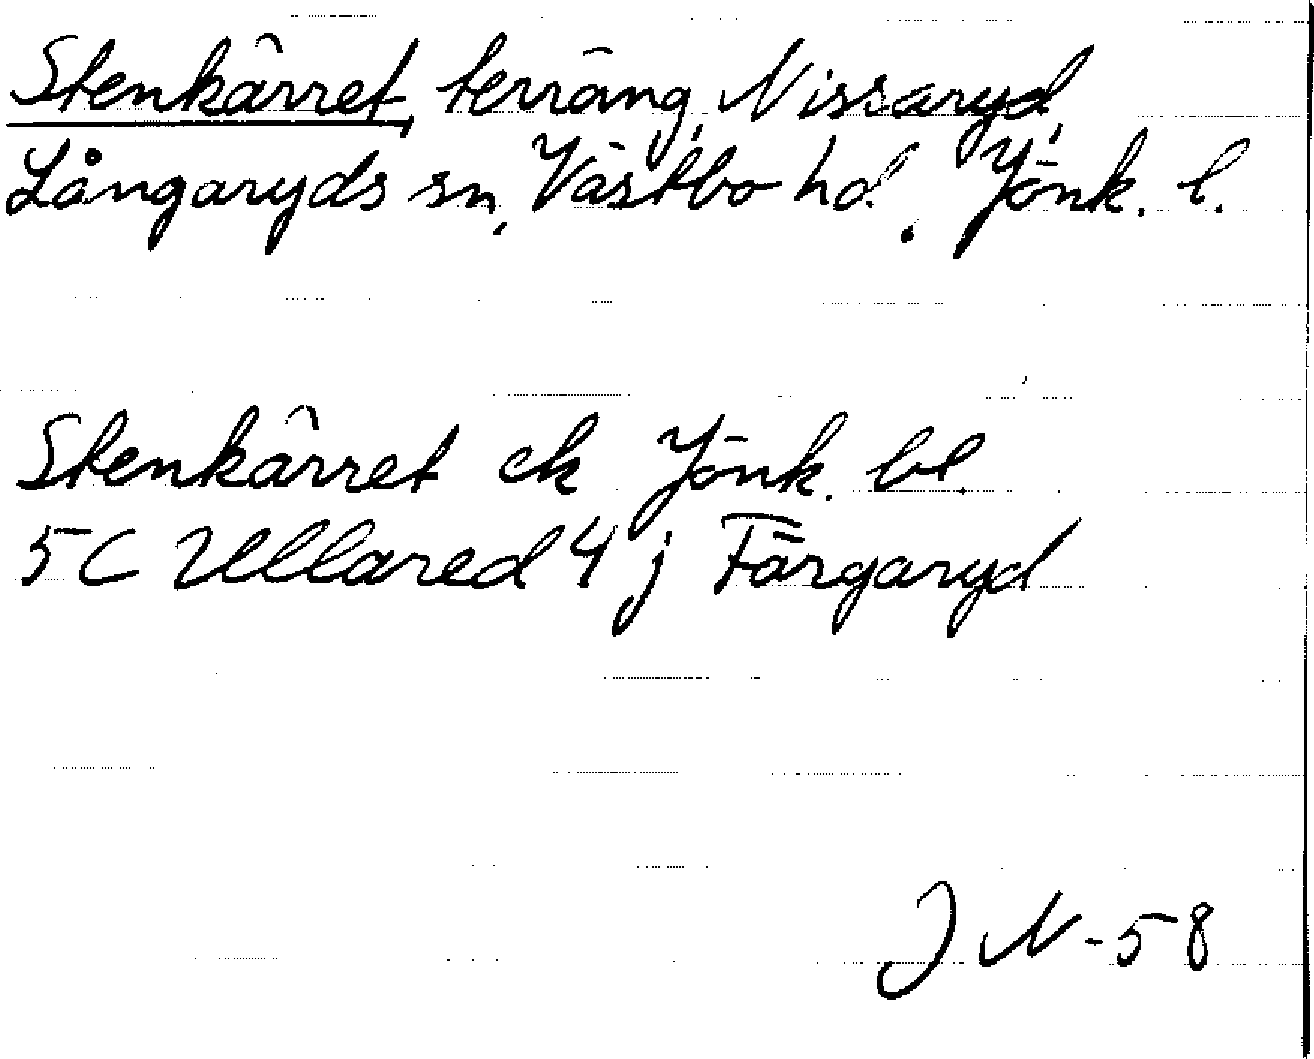 Stenkärret, terräng, Nissaryd,
Långaryds sn, Västbo hd. Jönk. l.
Stenkärret ek Jönk. bl.
5C Ullared 4 j Färgaryd
J N - 58